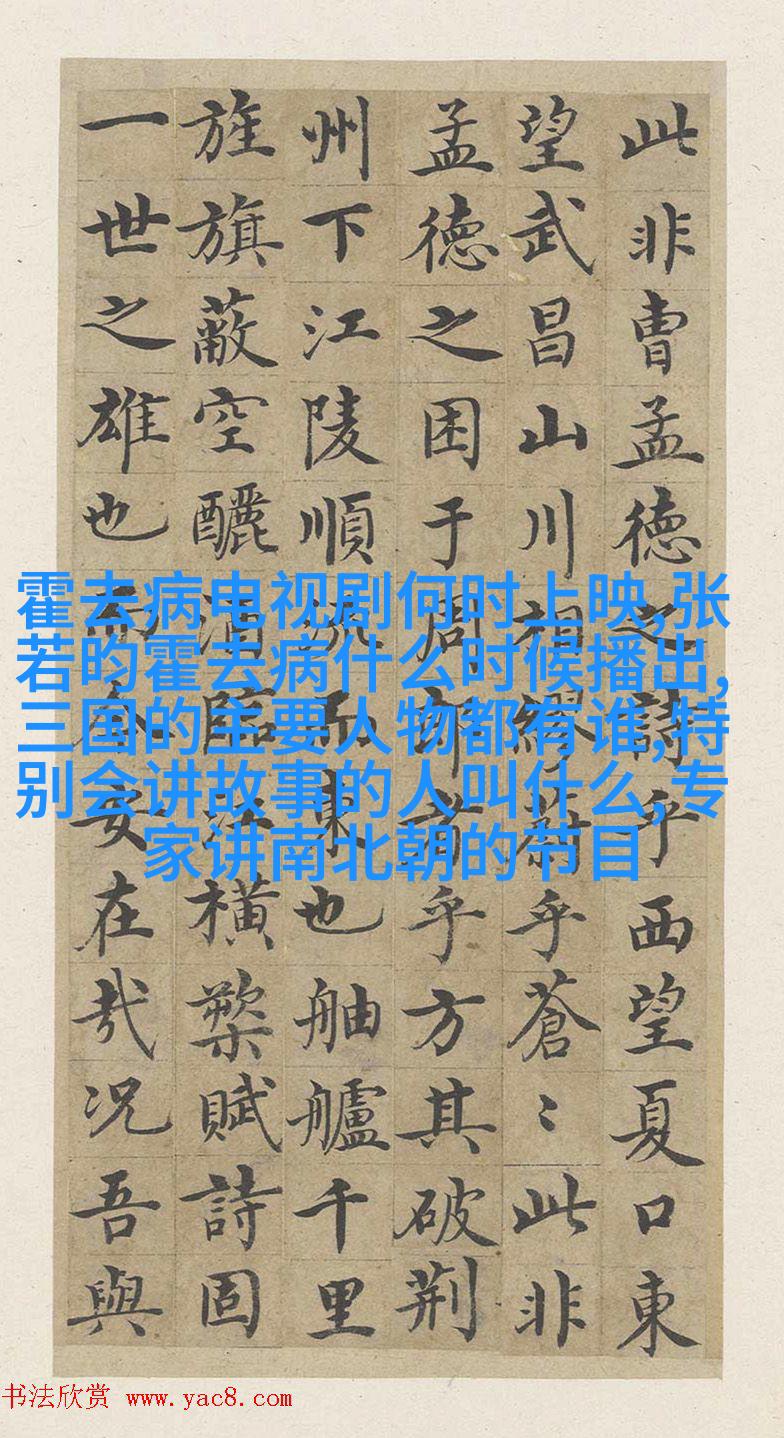 此非曹孟德之詩乎西望夏口東
望武昌山川相繆蔚乎蒼〻此非
孟德之困于周郎者乎方其破荆
州下江陵順流而東也舳艫千里
旌旗蔽空釃酒臨江橫槊賦詩固
一世之雄也而今安在哉况吾與
霍去病电视剧何时上映,张
若昀霍去病什么时候播出,
三国的主要人物都有谁,特
别会讲故事的人叫什么,专
家讲南北朝的节目
书法欣赏 www.yac8.com